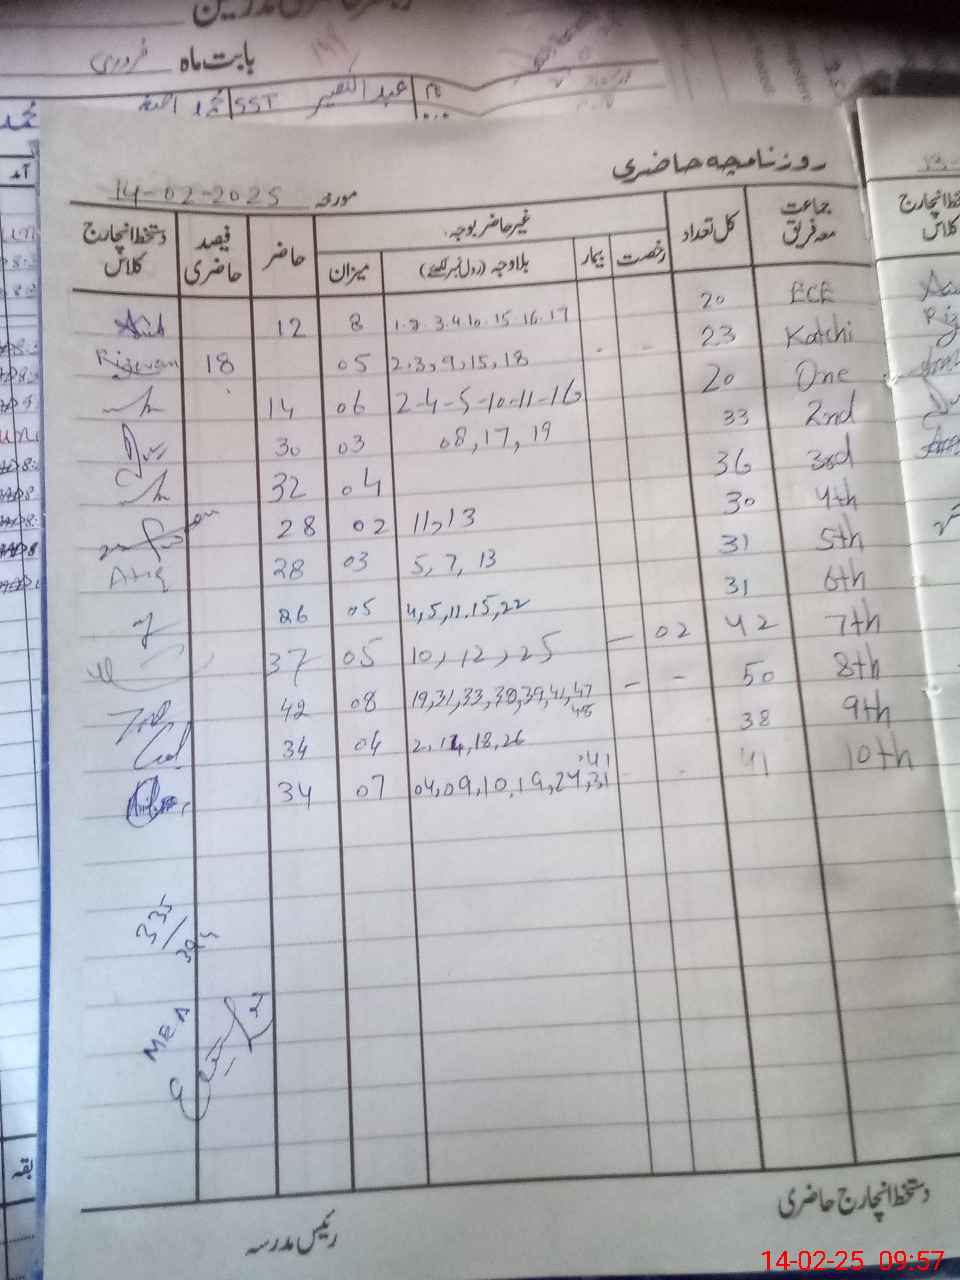 بابت ماہ فروری
نام عبدالنصیر SST محمد
روزنامچہ حاضری
مورخہ 14-02-2025
جماعت معہ فریق کل تعداد غیر حاضر بوجہ: حاضر فیصد حاضری دستخط انچارج کلاس
رخصت بیمار بلاوجہ (رول نمبر لکھئے) میزان
ECE 20 1.2.3.4.10.15.16.17 8 12
Katchi 23 - - 2,3,9,15,18 05 18 Rizwan
One 20 2-4-5-10-11-16 06 14
2nd 33 08,17,19 03 30
3rd 36 04 32
4th 30 11,13 02 28
5th 31 5, 7, 13 03 28 Atiq
6th 31 4,5,11.15,22 05 26
7th 42 02 - 10, 12, 25 05 37
8th 50 - - 19,31,33,38,39,41,47 48 08 42
9th 38 2,14,18,26 04 34
10th 41 04,09,10,19,24,31 .41 07 34
335/
MEA
دستخط انچارج حاضری
رئیس مدرسہ
14-02-25 09:57